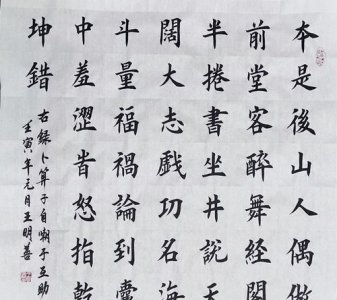 本是後山人偶做
前堂客醉舞經閣
半捲書坐井說天
闊大志戲功名海
斗量福禍論到囊
中羞澀昔怒指乾
坤錯
右録卜算子自嘲于互助
壬寅年元月王明善